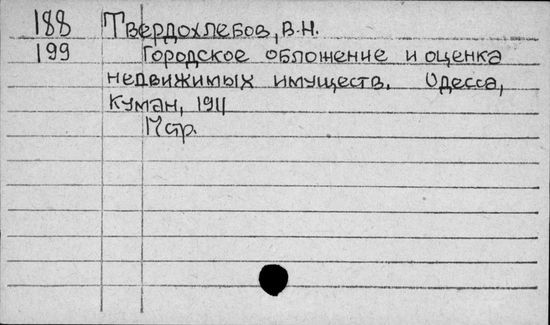 188 Твердохлебов, В.Н.
199 Городское обложение и оценка
недвижимых имуществ. Одесса,
Куман, 1911
17 стр.